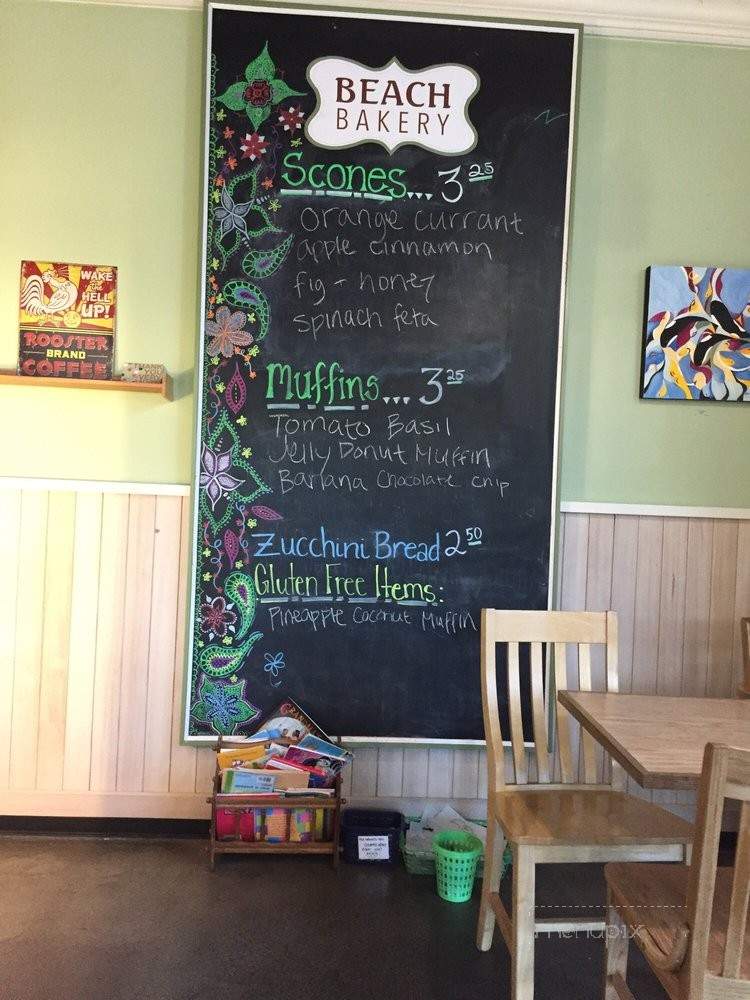 BEACH
BAKERY
Scones... 3 25
orange currant
apple cinnamon
fig - honey
spinach feta
Muffins... 3 25
Tomato Basil
Jelly Donut Muffin
Banana Chocolate chip
Zucchini Bread 2 50
Gluten Free Items:
Pineapple Coconut Muffin
WAKE
THE
HELL
UP!
ROOSTER
BRAND
COFFEE
menupix